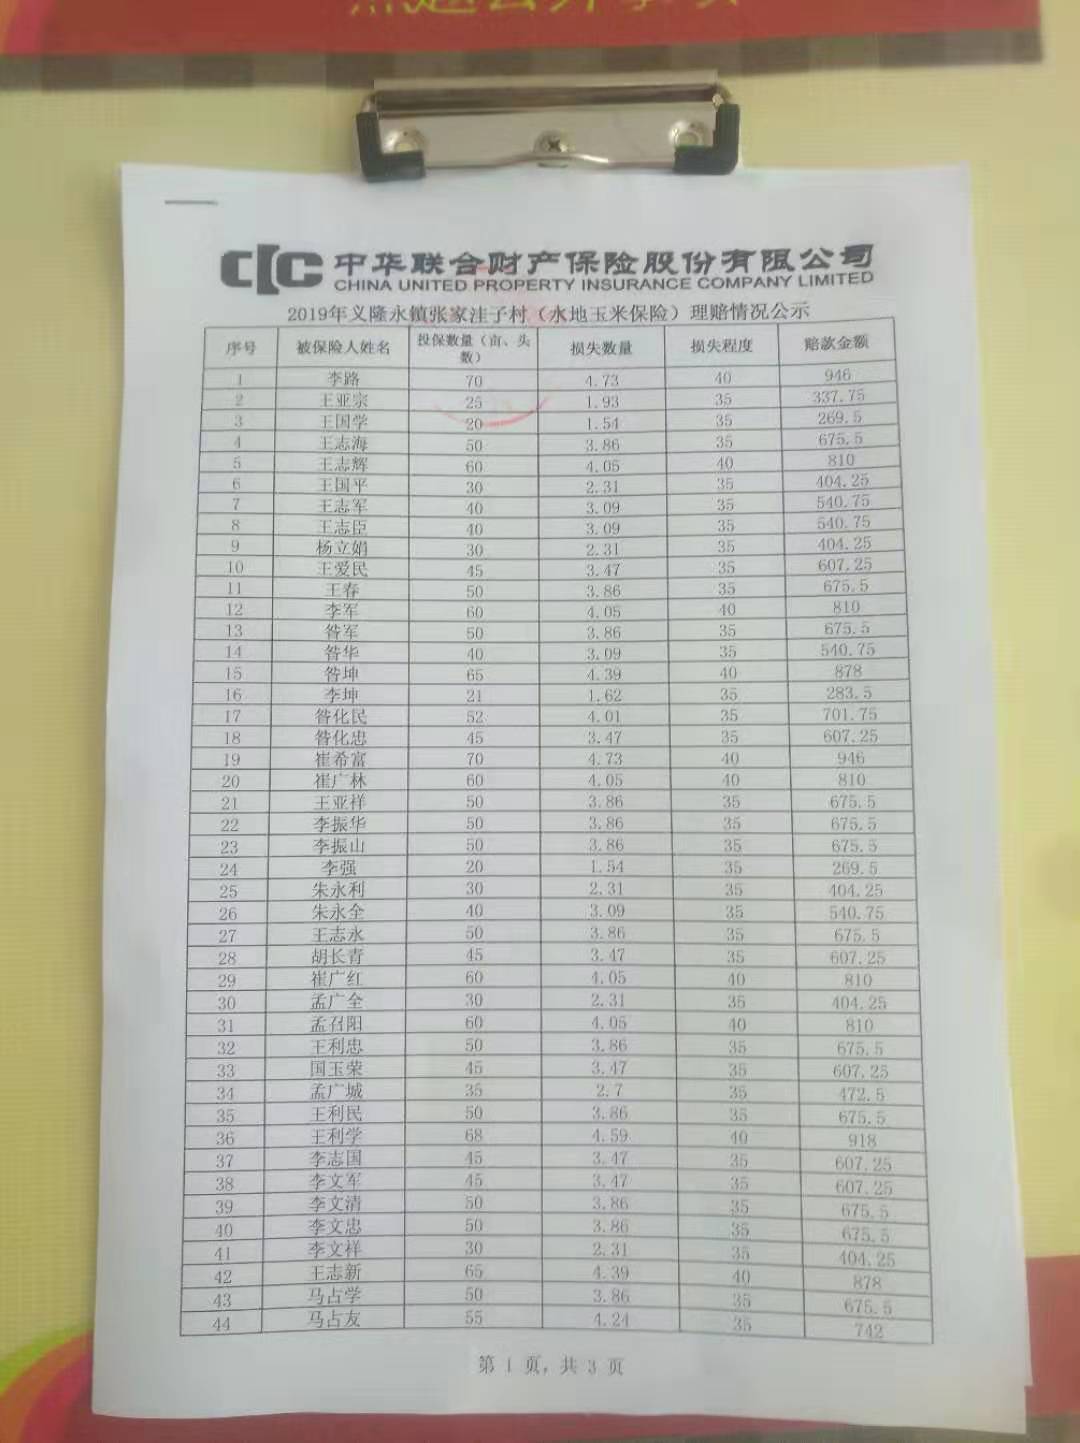 中华联合财产保险股份有限公司
CHINA UNITED PROPERTY INSURANCE COMPANY LIMITED
2019年义隆永镇张家洼子村（水地玉米保险）理赔情况公示
序号 被保险人姓名 投保数量（亩、头数） 损失数量 损失程度 赔款金额
1 李路 70 4.73 40 946
2 王亚宗 25 1.93 35 337.75
3 王国学 20 1.54 35 269.5
4 王志海 50 3.86 35 675.5
5 王志辉 60 4.05 40 810
6 王国平 30 2.31 35 404.25
7 王志军 40 3.09 35 540.75
8 王志臣 40 3.09 35 540.75
9 杨立娟 30 2.31 35 404.25
10 王爱民 45 3.47 35 607.25
11 王春 50 3.86 35 675.5
12 李军 60 4.05 40 810
13 昝军 50 3.86 35 675.5
14 昝华 40 3.09 35 540.75
15 昝坤 65 4.39 40 878
16 李坤 21 1.62 35 283.5
17 昝化民 52 4.01 35 701.75
18 昝化忠 45 3.47 35 607.25
19 崔希富 70 4.73 40 946
20 崔广林 60 4.05 40 810
21 王亚祥 50 3.86 35 675.5
22 李振华 50 3.86 35 675.5
23 李振山 50 3.86 35 675.5
24 李强 20 1.54 35 269.5
25 朱永利 30 2.31 35 404.25
26 朱永全 40 3.09 35 540.75
27 王志永 50 3.86 35 675.5
28 胡长青 45 3.47 35 607.25
29 崔广红 60 4.05 40 810
30 孟广全 30 2.31 35 404.25
31 孟召阳 60 4.05 40 810
32 王利忠 50 3.86 35 675.5
33 国玉荣 45 3.47 35 607.25
34 孟广城 35 2.7 35 472.5
35 王利民 50 3.86 35 675.5
36 王利学 68 4.59 40 918
37 李志国 45 3.47 35 607.25
38 李文军 45 3.47 35 607.25
39 李文清 50 3.86 35 675.5
40 李文忠 50 3.86 35 675.5
41 李文祥 30 2.31 35 404.25
42 王志新 65 4.39 40 878
43 马占学 50 3.86 35 675.5
44 马占友 55 4.24 35 742
第 1 页，共 3 页